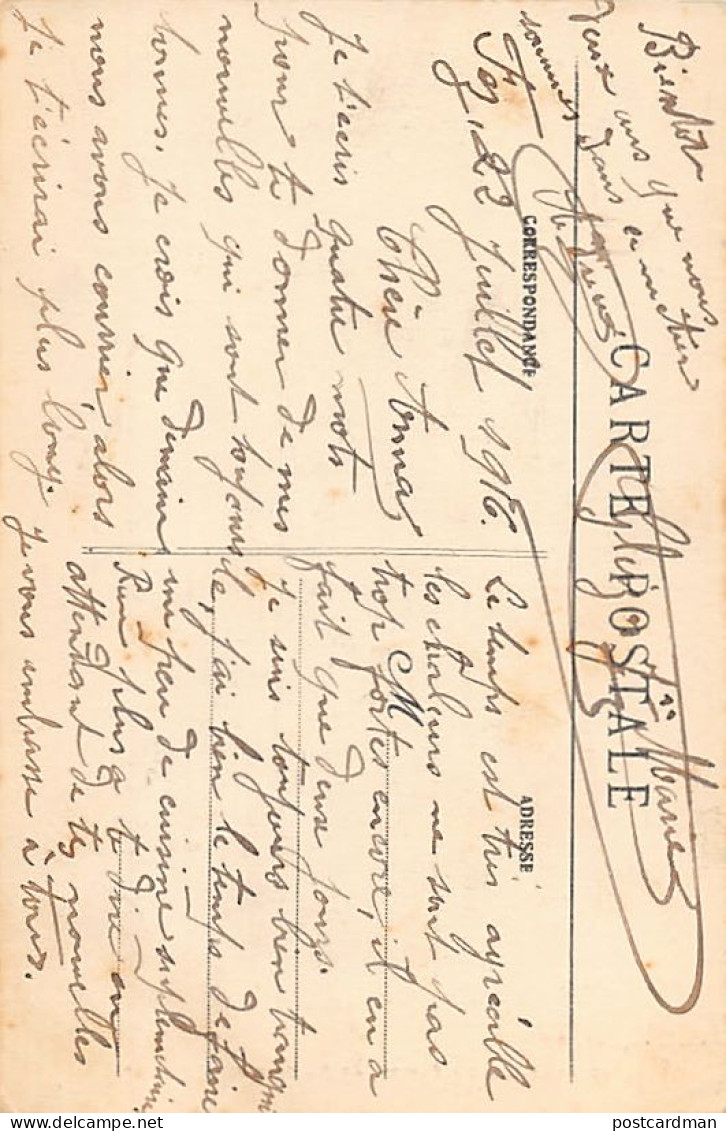 CARTE POSTALE
CORRESPONDANCE
ADRESSE
Bientôt
deux ans que nous
sommes dans ce métier
Fez, 22 Juillet 1916.
Chère Anna,
Je t'écris quatre mots
pour te donner de mes
nouvelles qui sont toujours
bonnes. Je crois que demain
nous avons courrier, alors
je t'écrirai plus long.
Le temps est très agréable
les chaleurs ne sont pas
trop fortes encore, il en a
fait que deux jours.
Je suis toujours bien tranqui
le, j'ai bien le temps de faire
un peu de cuisine
Rien plus à te dire en
attendant de tes nouvelles
je vous embrasse à tous.
M
Marie
postcardman